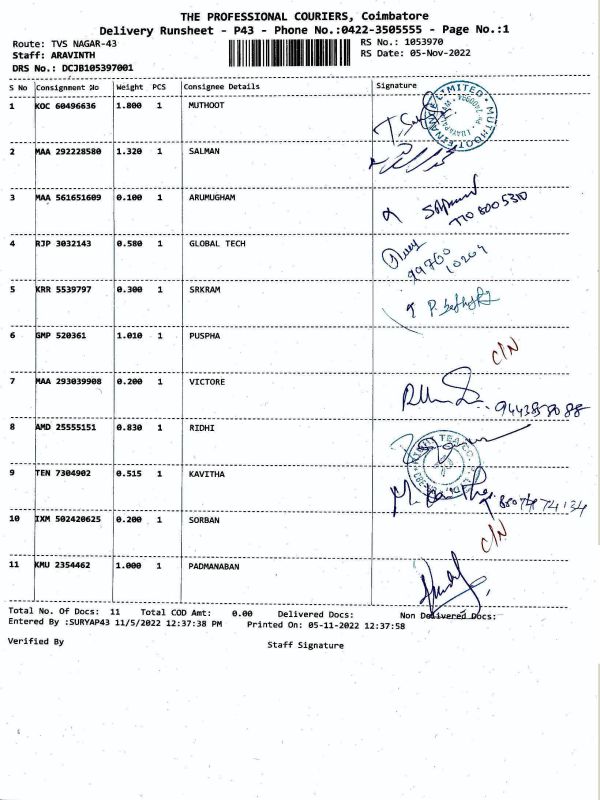 THE PROFESSIONAL COURIERS, Coimbatore
Delivery Runsheet - P43 - Phone No.:0422-3505555 - Page No.:1
Route: TVS NAGAR-43 RS No.: 1053970
Staff: ARAVINTH RS Date: 05-Nov-2022
DRS No.: DCJB105397001
S No Consignment No Weight PCS Consignee Details Signature
1 KOC 60496636 1.800 1 MUTHOOT
2 MAA 292228580 1.320 1 SALMAN
3 MAA 561651609 0.100 1 ARUMUGHAM
4 RJP 3032143 0.580 1 GLOBAL TECH
99760
10204
5 KRR 5539797 0.300 1 SRKRAM
6 GMP 520361 1.010 1 PUSPHA
C/N
7 MAA 293039908 0.200 1 VICTORE
8 AMD 25555151 0.830 1 RIDHI
9 TEN 7304902 0.515 1 KAVITHA
10 IXM 502420625 0.200 1 SORBAN
C/N
11 KMU 2354462 1.000 1 PADMANABAN
Total No. Of Docs: 11 Total COD Amt: 0.00 Delivered Docs: Non Delivered Docs:
Entered By :SURYAP43 11/5/2022 12:37:38 PM Printed On: 05-11-2022 12:37:58
Verified By Staff Signature